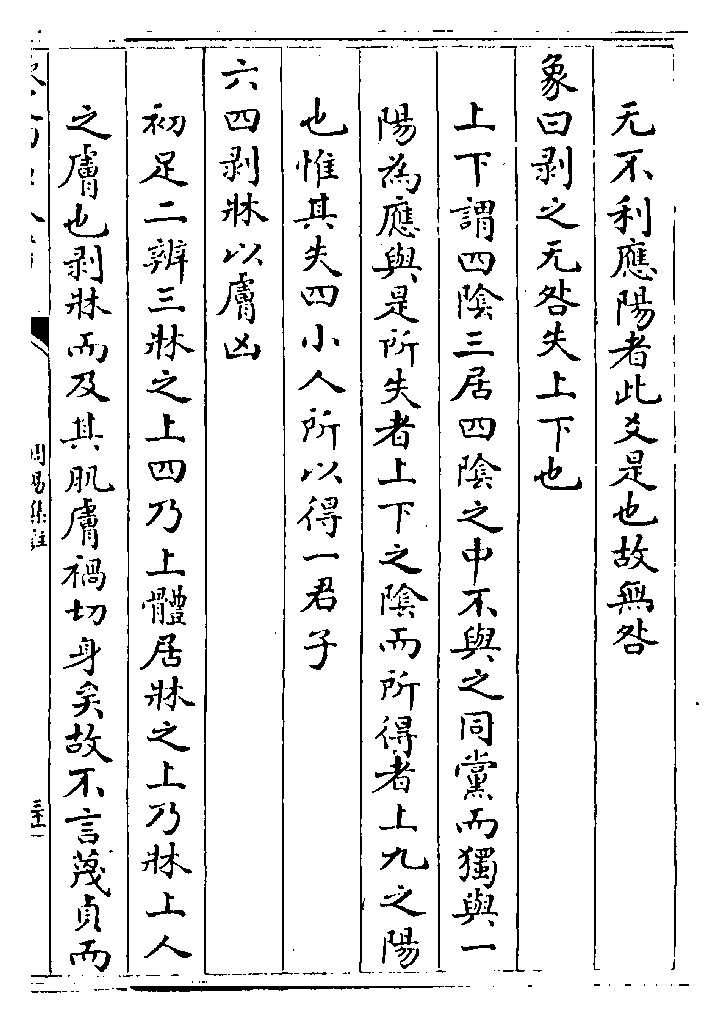 无不利應陽者此爻是也故無咎
象曰剥之无咎失上下也
上下謂四陰三居四陰之中不與之同黨而獨與一
陽為應與是所失者上下之陰而所得者上九之陽
也惟其失四小人所以得一君子
六四剥牀以膚凶
初足二辨三牀之上四乃上體居牀之上乃牀上人
之膚也剥牀而及其肌膚禍切身矣故不言蔑貞而
周易集註